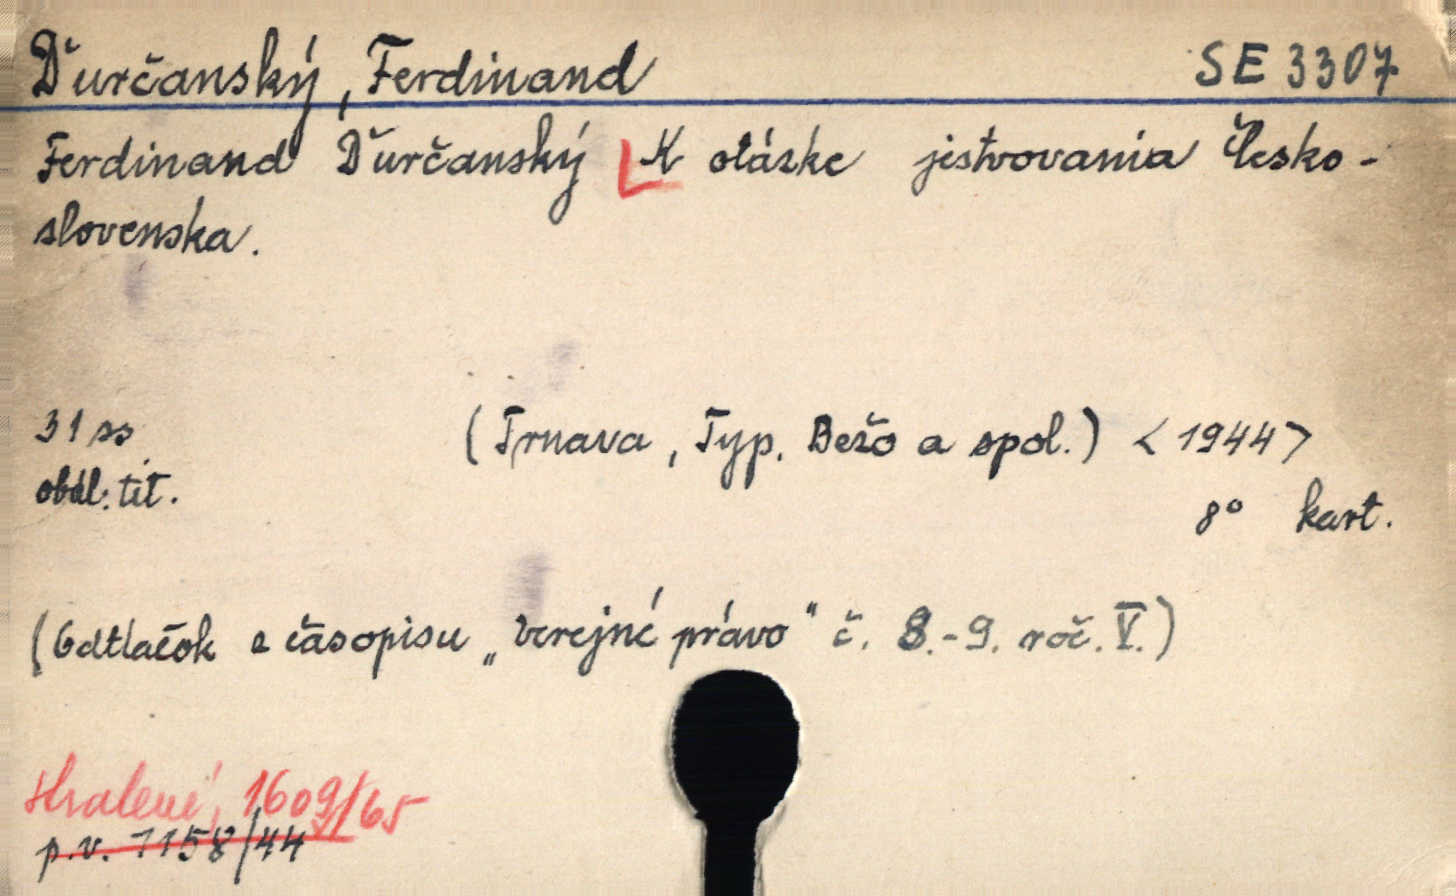 Ďurčanský, Ferdinand SE 3307
Ferdinand Ďurčanský K otázke jestvovania Česko-
slovenska.
31 ss (Trnava, Typ. Bežo a spol.) <1944>
obál. tit.
8° kart.
(Odtlačok z časopisu „Verejné právo" č. 8.-9. roč. V.)
1609/65
p.v. 7158/44